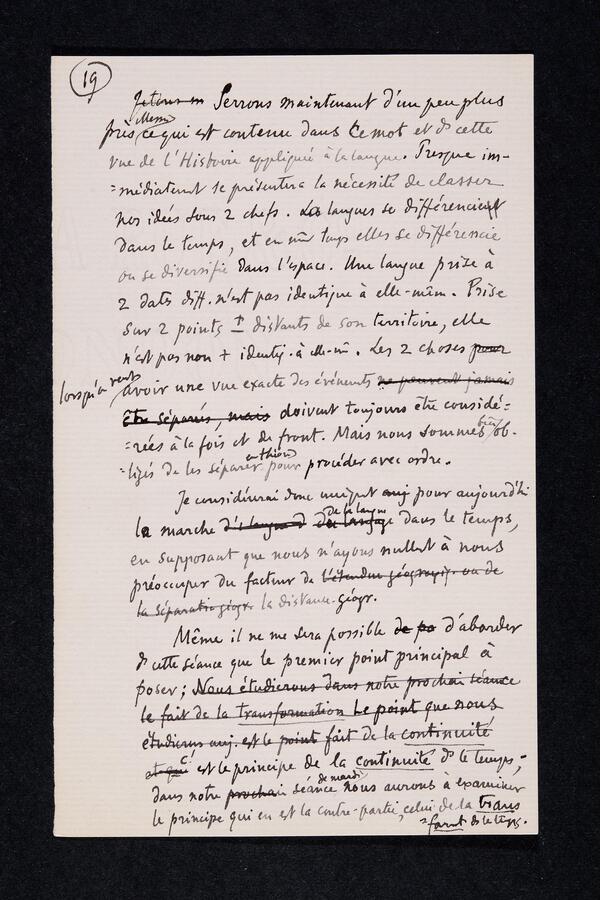 19
Jetons un Serrons maintenant d'un peu plus
près ce qui est contenu dans ce mot et ds cette
vue de l'Histoire appliquée à la langue. Presque im-
=médiatemt se présentera la nécessité de classer
nos idées sous 2 chefs. Les langues se différencient
dans le temps, et en mm temps elles se différencie
ou se diversifie dans l'espace. Une langue prise à
2 dates diff. n'est pas identique à elle-mêm. Prise
sur 2 points ± distants de son territoire, elle
n'est pas non + identiq. à elle-mm. Les 2 choses pour
lorsqu'on veut
avoir une vue exacte des événements ne peuvent jamais
être séparés, mais doivent toujours être considé=
=rées à la fois et de front. Mais nous sommes bien ob-
=ligés de les séparer en théorie pour procéder avec ordre.
Je considérerai donc uniqmt auj pour aujourd'hui
la marche de la langue dans le temps,
en supposant que nous n'ayons nullemt à nous
préoccuper du facteur de l'étendue géograph. ou de
la séparation géogr. la distance géogr.
Même il ne me sera possible de po d'aborder
ds cette séance que le premier point principal à
poser; Nous étudierons dans notre prochain séance
le fait de la transformation Le point que nous
étudierons auj. est le point fait de la continuité
et qui c'est le principe de la continuité ds le temps;
dans notre prochain séance de mardi nous aurons à examiner
le principe qui en est la contre-partie, celui de la trans
=formt ds le temps.